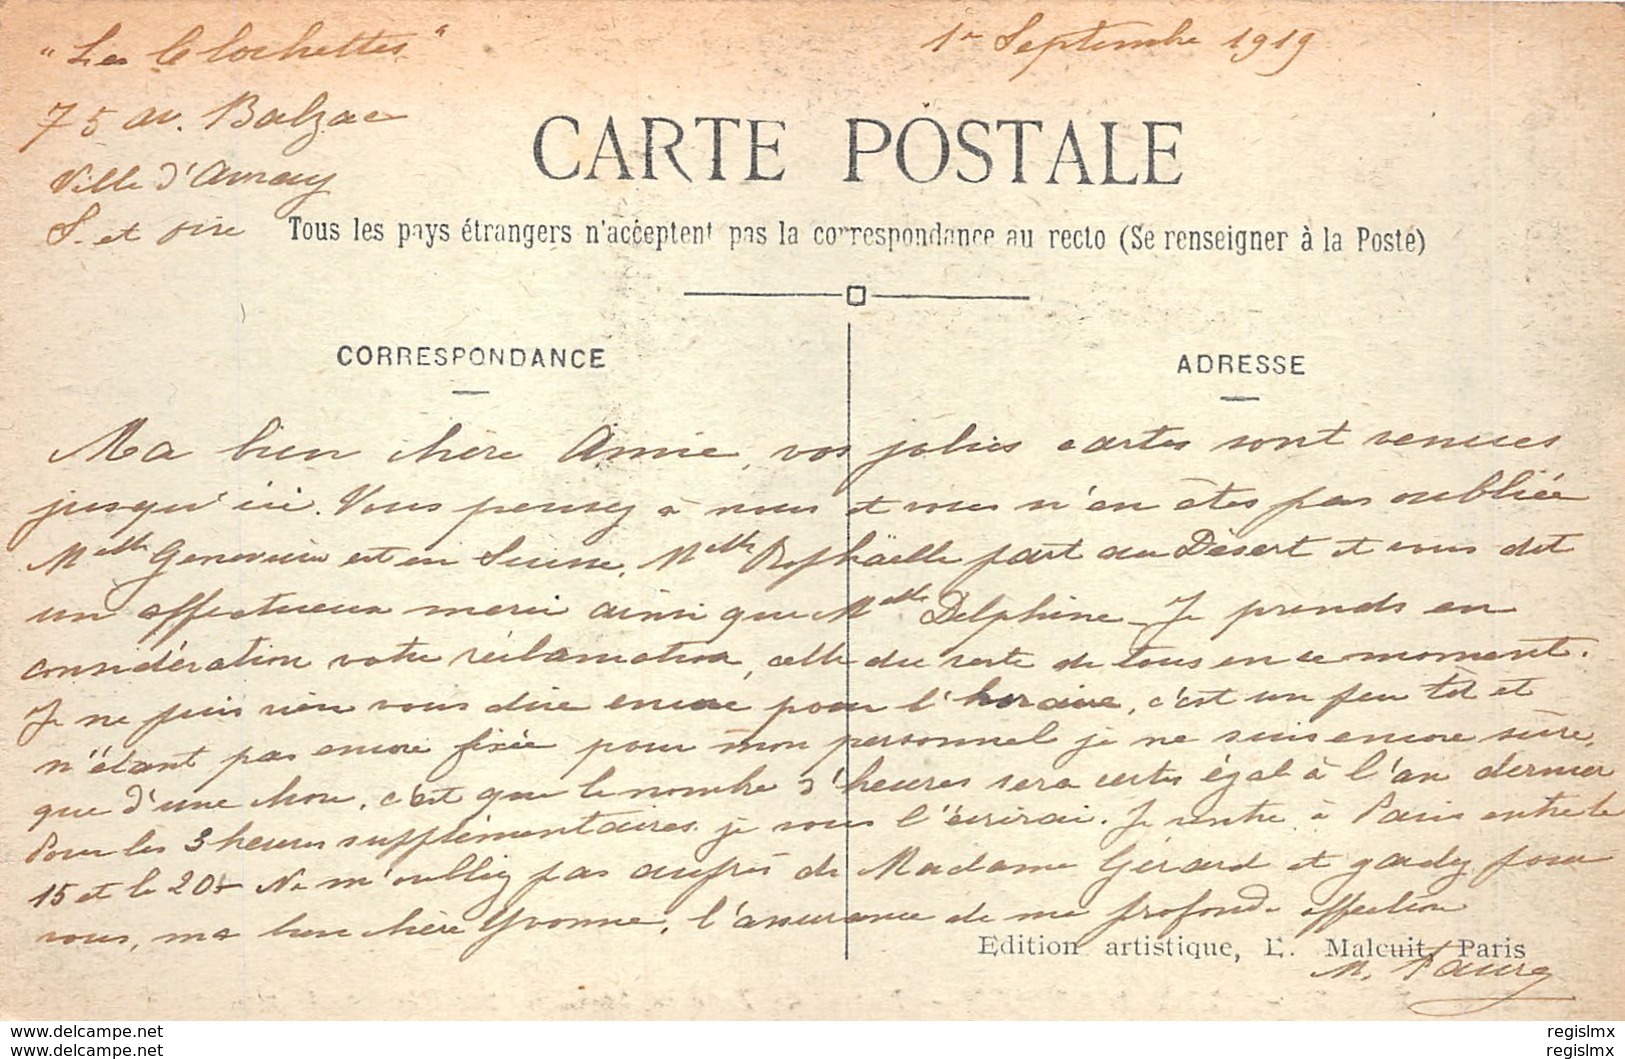 "Les Clochettes"
1er Septembre 1919
75 av. Balzac
Ville d'Avray
S. et Oise
CARTE POSTALE
Tous les pays étrangers n'acceptent pas la correspondance au recto (Se renseigner à la Poste)
CORRESPONDANCE
ADRESSE
Ma bien chère Amie, vos jolies cartes sont venues
jusqu'ici. Vous pensez à nous et vous n'en êtes pas oubliée
Melle Geneviève est en Suisse, Melle Raphaëlle part au Désert et vous dit
un affectueux merci ainsi que Melle Delphine - Je prends en
considération votre réclamation, celle du reste de tous en ce moment.
Je ne puis rien vous dire encore pour l'horaire, c'est un peu tôt et
n'étant pas encore fixée pour mon personnel je ne suis encore sûre,
que d'une chose, c'est que le nombre d'heures sera certes égal à l'an dernier
Pour les 3 heures supplémentaires je vous l'écrirai. Je rentre à Paris entre le
15 et le 20 - Ne m'oubliez pas auprès de Madame Gérard et gardez pour
vous, ma bien chère Yvonne, l'assurance de ma profonde affection
Edition artistique, L. Malcuit, Paris
M. Faure
delcampe.net
delcampe.net
regislmx
regislmx